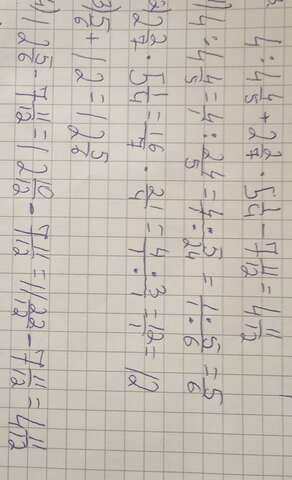 4 : 4 4/5 + 2 2/7 · 5 1/4 - 7 11/12 = 4 11/12
1) 4 : 4 4/5 = 4/1 : 24/5 = 4·5/1·24 = 1·5/1·6 = 5/6
2) 2 2/7 · 5 1/4 = 16/7 · 21/4 = 4·3/1·1 = 12/1 = 12
3) 5/6 + 12 = 12 5/6
4) 12 5/6 - 7 11/12 = 12 10/12 - 7 11/12 = 11 22/12 - 7 11/12 = 4 11/12